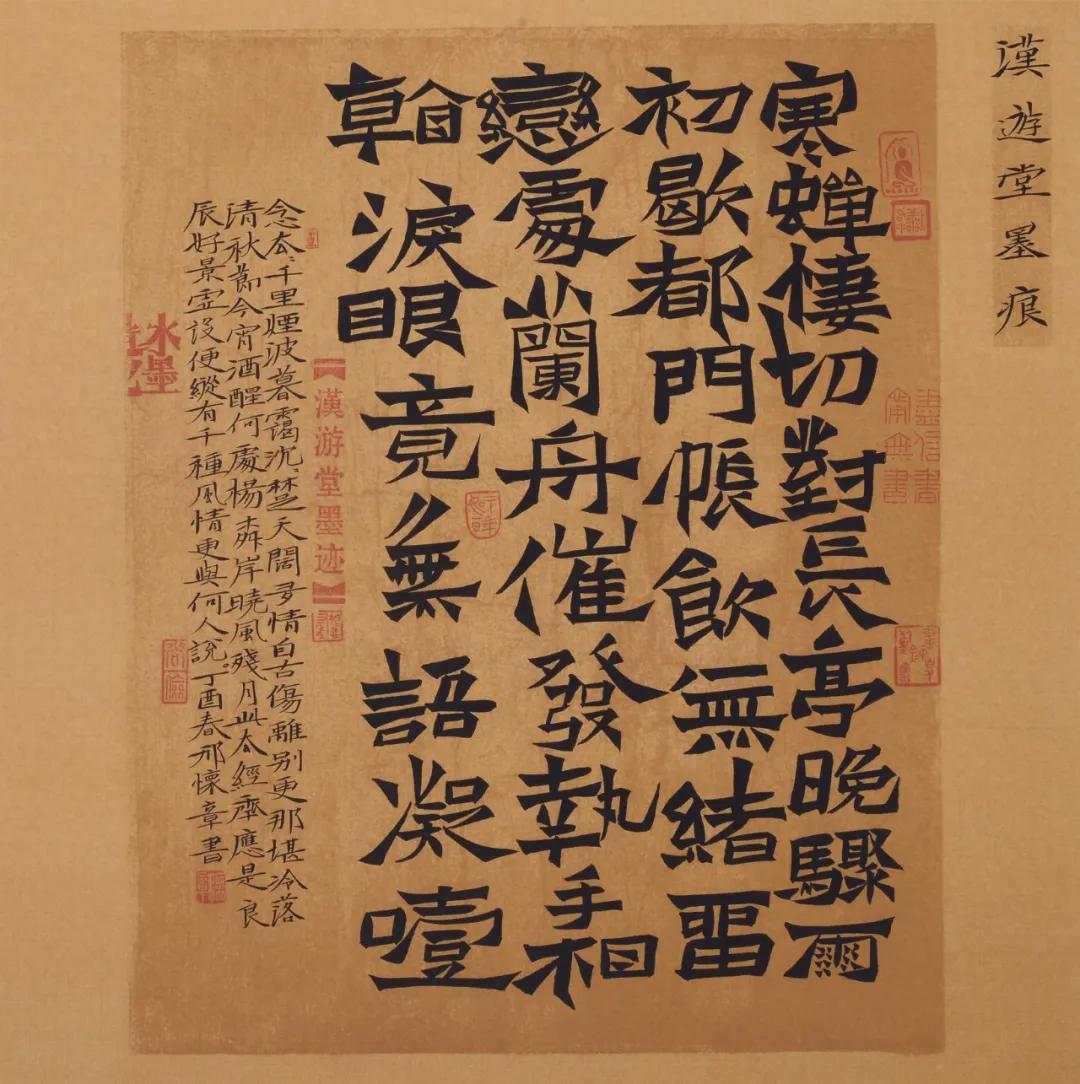 漢遊堂墨痕
寒蟬悽切對長亭晚驟雨
初歇都門帳飲無緒畱
戀處蘭舟催發執手相
看淚眼竟無語凝噎
【漢游堂墨迹】
念去、千里煙波暮靄沉、楚天闊多情自古傷離别更那堪冷落
清秋節今宵酒醒何處楊柳岸曉風殘月此去經年應是良
辰好景虛設便縱有千種風情更與何人說丁酉春邢懷章書
水墨